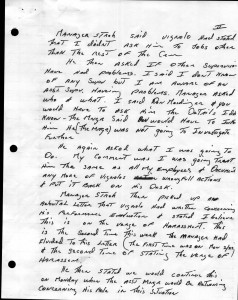 II
Manager Stroh said Vignalo had stated
that I didn't ask him to jobs other
than the rest of the crew.
He then asked if other supervisor
have had problems. I said I don't know
of any super but I am aware of an
area super having problems. Manager asked
who & what I said Ron Haidinger & you
would have to ask him the details I do
know - the Mngr said would have to ask
him He (the Mngr) was not going to investigate
further
He again asked what I was going to
do. My comment was I was going treat
him the same as all my employees & document
any more of Vignalos unlawful actions
& put it back on his desk.
Manager Stroh then picked up
rebuttal letter that Vignalo had written concerning
his performance evaluation & stated I believe
this is on the verge of harassment. This
is the second time this week the manager had
eluded to this letter the first time was on
& the second time of stating the verge of
harassment.
He then stated we would continue this
on Monday when the Asst Mngr would be returning
concerning his role in this situation